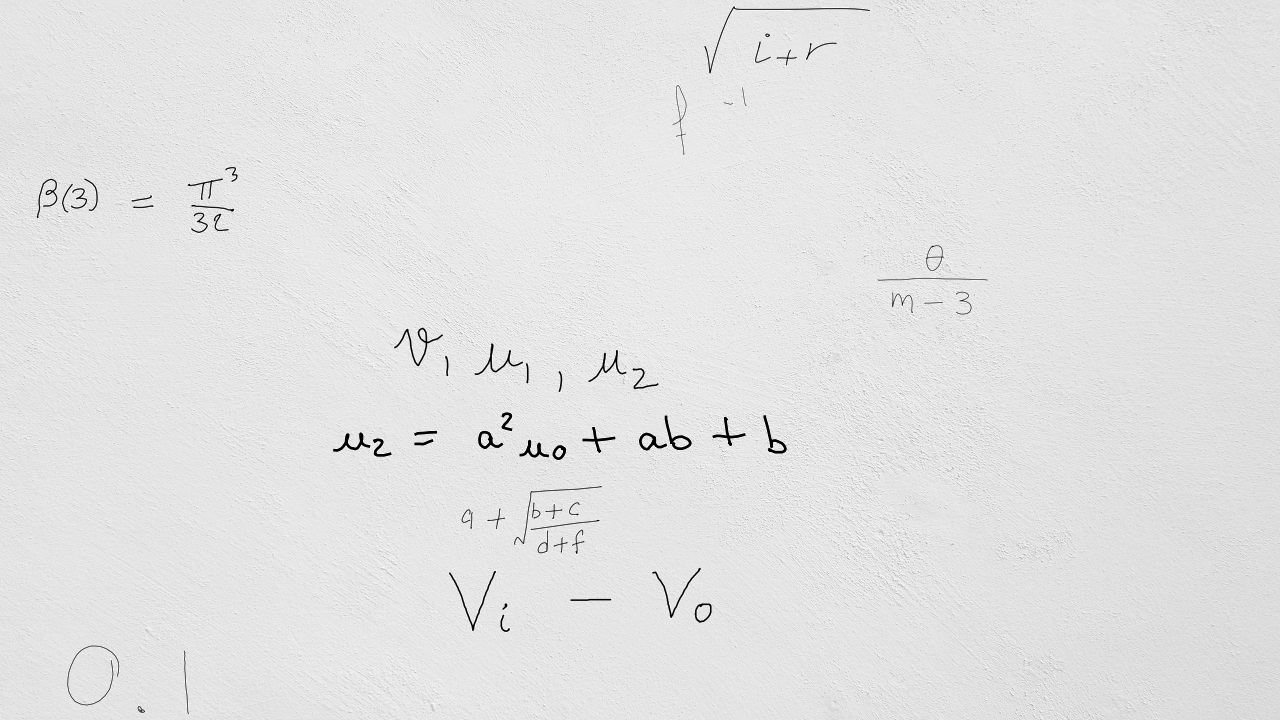 √(i+r)
f⁻¹
β(3) = π³/32
θ/(m-3)
v, μ₁, μ₂
μ₂ = a²μ₀ + ab + b
a + √((b+c)/(d+f))
Vᵢ - V₀
0.1